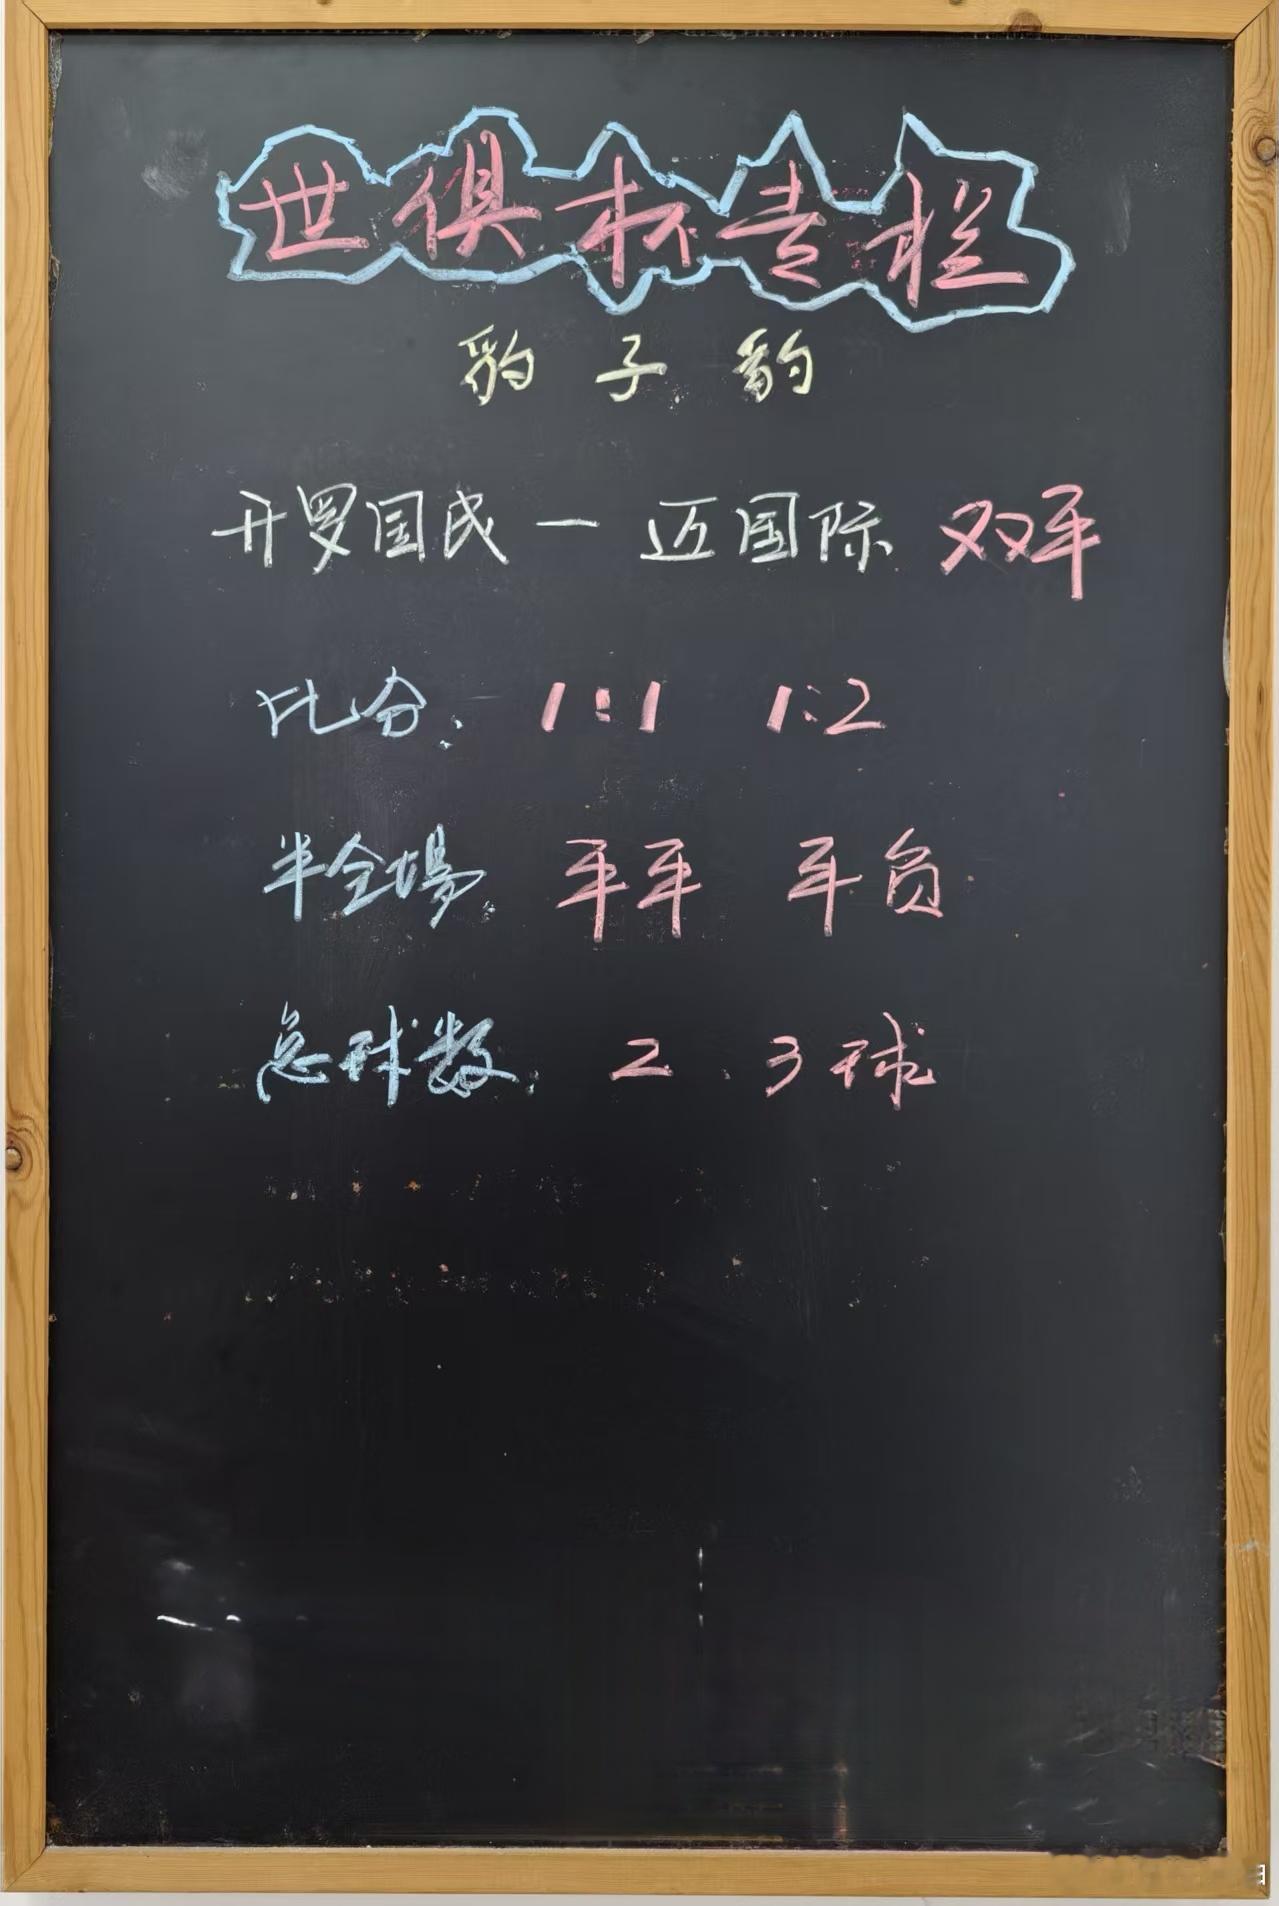 世俱杯专栏
豹子豹
开罗国民一迈国际 双平
比分: 1:1 1:2
半全場: 平平 平负
总球数: 2、3球